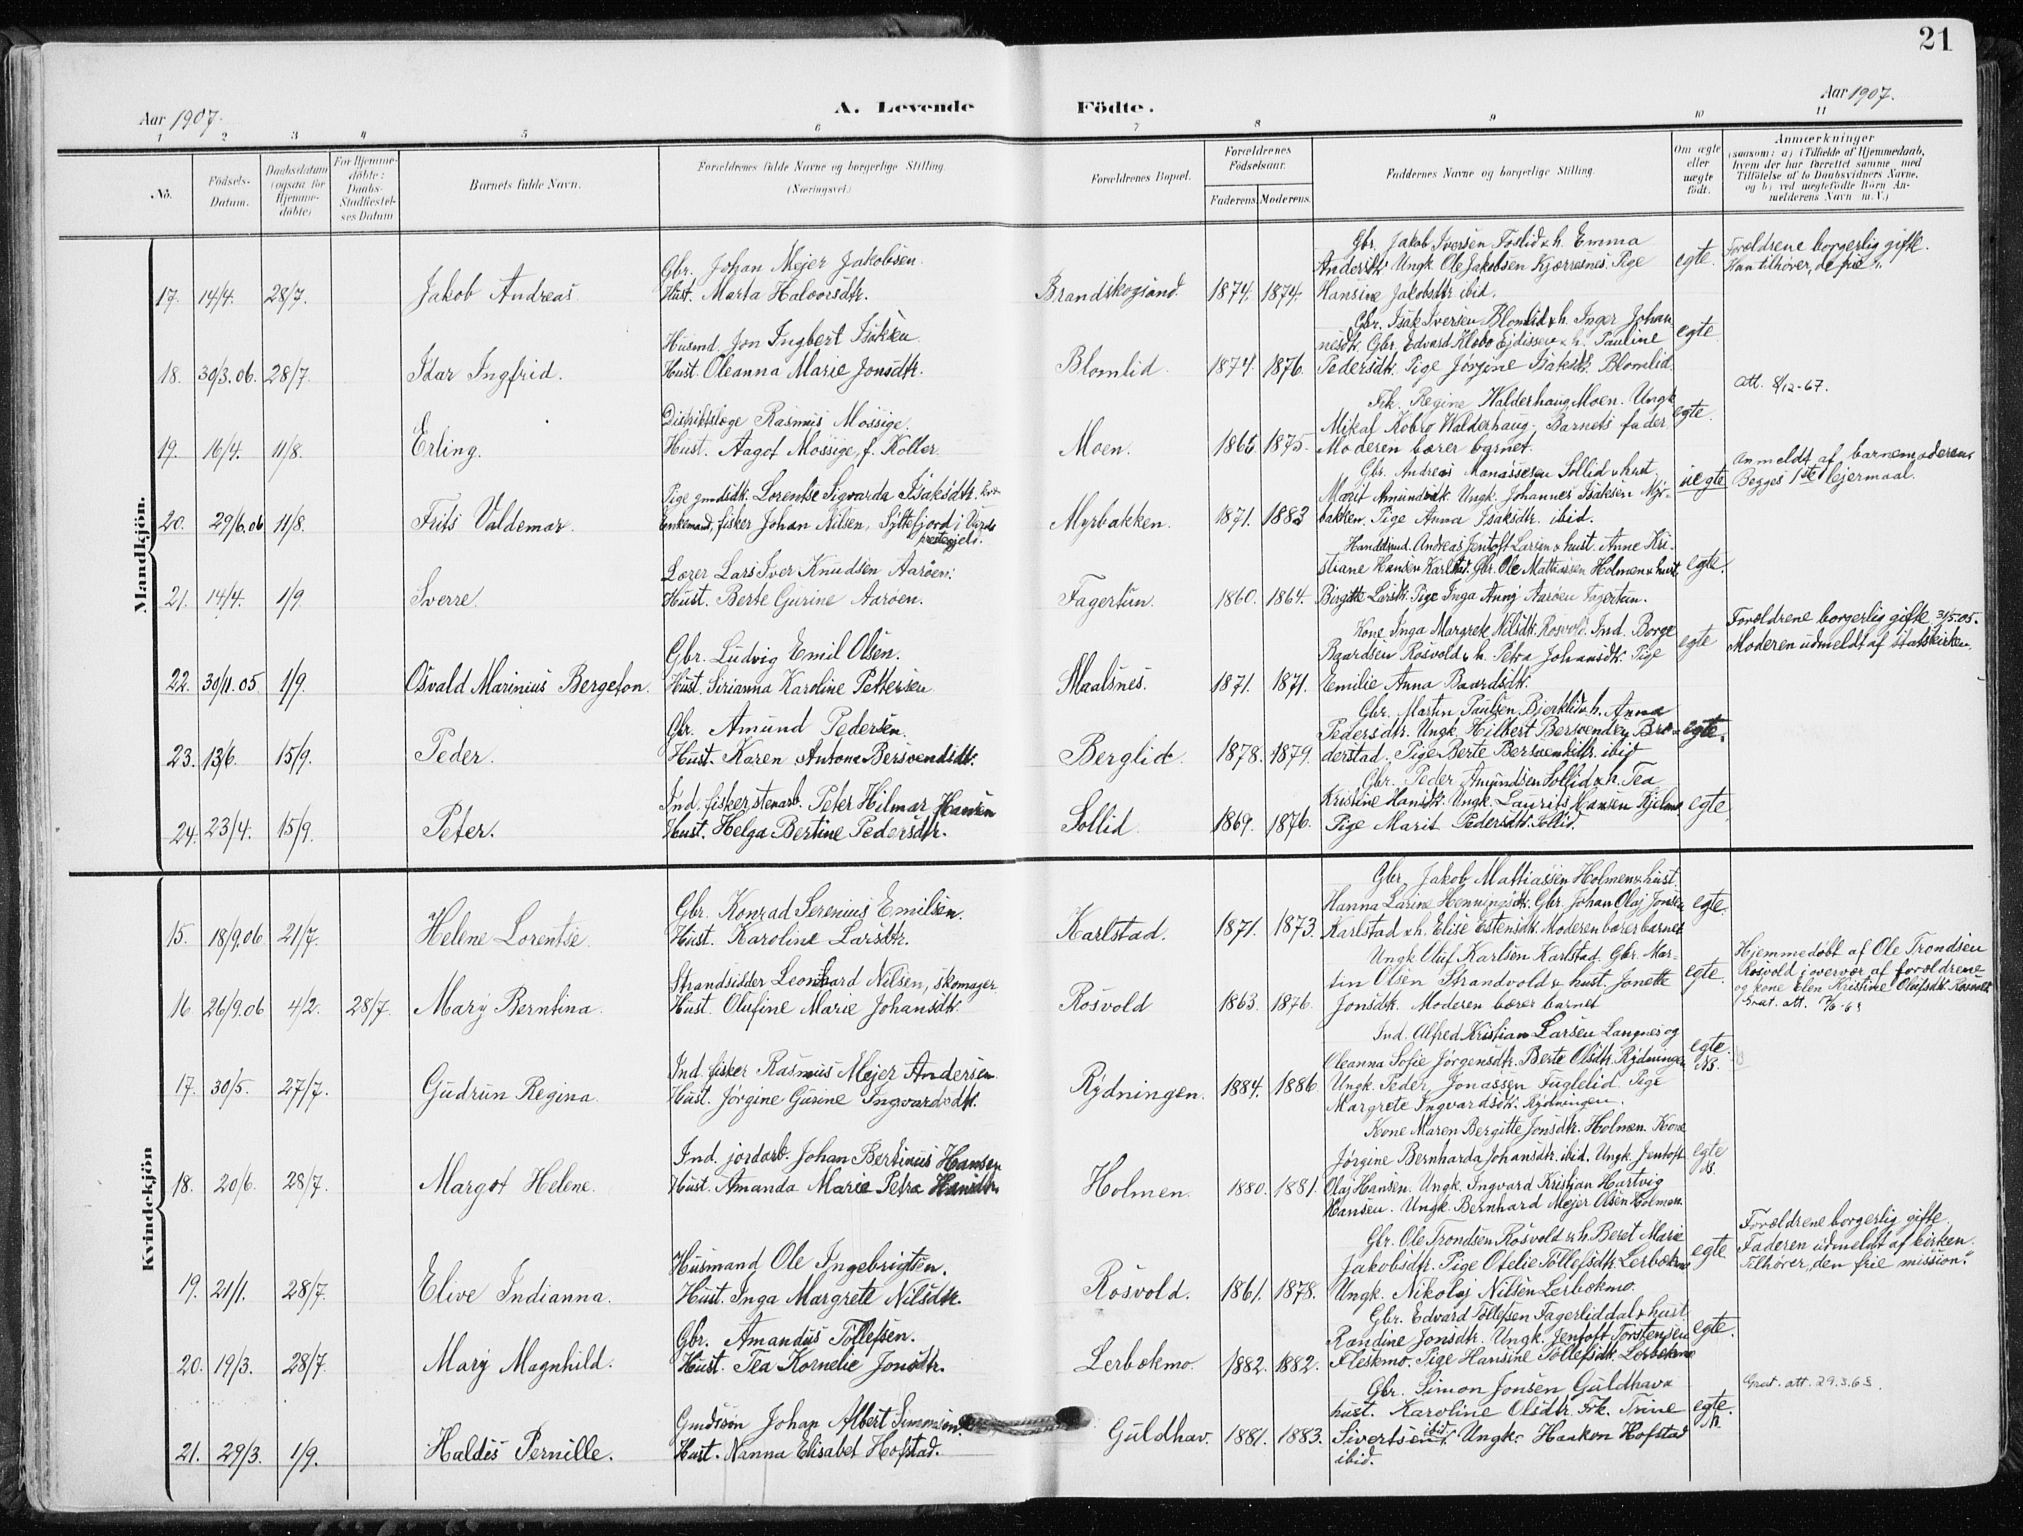 21
Aar 1907.
A. Levende Födte.
Aar 1907.
1 2 3 4 5 6 7 8 9 10 11
No.
Födsels-Datum.
Daabsdatum (ogsaa for Hjemmedöbte)
For Hjemmedöbte: Daabs-Stadfæstelses Datum
Barnets fulde Navn.
Forældrenes fulde Navne og borgerlige Stilling. (Næringsvei.)
Forældrenes Bopæl.
Forældrenes Födselsaar.
Faderens. Moderens.
Faddernes Navne og borgerlige Stilling.
Om ægte eller uægte födt.
Anmærkninger
(saasom: a) i Tilfælde af Hjemmedaab, hvem der har forrettet samme, med Tilföielse af to Daabsvidners Navne, og b) ved uægtefödte Börn Anmelderens Navn m.V.)
Mandkjön.
Gbr. Jakob Iversen Foslid & h. Emma
Gbr. Johan Mejer Jakobsen
Andersdtr. Ungk. Ole Jakobsen Kjærresnes. Pige
egte.
Forældrene borgerlig gifte.
Han tilhører "de frie".
17. 14/4. 28/7. Jakob Andreas Hust. Marta Halvorsdtr. Brandskogsand. 1874. 1874. Hansine Jakobsdtr ibid.
Gbr. Isak Iversen Blomlid & h. Inger Johan
Husmd. Jon Ingbert Isaksen
nesdtr. Gbr. Edvard Klobo Ejdissen & h. Pauline
egte
18. 30/3.06. 28/7. Idar Ingfrid. Hust. Oleanna Marie Jonsdtr. Blomlid. 1874. 1876. Pedersdtr. Pige Jørgine Isaksdtr. Blomlid.
Att. 8/12-67.
Frk. Regine Walderhaug Moen. Ungk
Distriktslæge Rasmus Mossige.
Mikal Kobro Walderhaug. Barnets fader
egte.
19. 16/4. 11/8. Erling. Hust. Aagot Mossige, f. Koller. Moen. 1865 1875. Moderen bærer barnet.
Gbr. Andreas Manassesen Sollid & hust.
Anmeldt af barnemoderen.
Begges 1ste lejermaal.
Pige gmdsdtr. Lorentse Sigvarda Isaksdtr.
Marit Amundsdtr. Ungk. Johannes Isaksen Myr-
uegte
20. 29/6.06 11/8. Frits Valdemar. Enkemand, fisker Johan Nilsen, Syltefjord i Vardø Myrbakken. 1871. 1883 bakken. Pige Anna Isaksdtr. ibid.
prestegjeld.
Handelsmd. Andreas Jentoft Larsen & hust. Anne Kri-
Lærer Lars Iver Knudsen Aarøen.
stiane Hansen Karlstad. Gbr. Ole Mattiassen Holmen & hust
egte.
21. 14/4. 1/9. Sverre. Hust. Berte Gurine Aarøen. Fagertun. 1860. 1864. Birgitte Larsdtr. Pige Inga Anny Aarøen Fagertun.
Kone Inga Margrete Nilsdtr. Rosvold. Ind. Borge
Forældrene borgerlig gifte 31/5.05.
Gbr. Ludvig Emil Olsen.
Baardsen Rosvold & h. Petra Johansdtr. Pige
egte
Moderen udmeldt af statskirken.
22. 30/11.05 1/9. Osvald Marinius Bergeton. Hust. Sirianna Karoline Pettersen Maalsnes. 1871. 1871. Emilie Anna Baardsdtr.
Gbr. Martin Paulsen Bjerklid & h. Anna
Gbr. Amund Pedersen.
Pedersdtr. Ungk. Hilbert Bersvendsen Bro-
egte.
23. 13/6. 15/9. Peder. Hust. Karen Antone Bersvendsdtr. Berglid. 1878. 1879. derstad. Pige Berte Bersvendsdtr. ibid
Gbr. Peder Amundsen Sollid & h. Tea
Ind. fisker, stenarb. Peter Hilmar Hansen
Kristine Hansdtr. Ungk. Laurits Hansen Kjelmo
egte
24. 23/4. 15/9. Peter. Hust. Helga Bertine Pedersdtr. Sollid. 1869. 1876. Pige Marit Pedersdtr. Sollid.
Kvindekjön
Gbr. Jakob Mattiassen Holmen & hust.
Gbr. Konrad Serenius Emilsen.
Hanna Larine Henningsdtr. Gbr. Johan Olaj Jonsen
egte.
15. 18/9.06 21/7. Helene Lorentse. Hust. Karoline Larsdtr. Karlstad. 1871. 1873. Karlstad & h. Elise Estensdtr. Moderen bærer barnet
Ungk. Oluf Karlsen Karlstad. Gbr. Mar-
Hjemmedøbt af Ole Trondsen
Strandsidder Leonhard Nilsen, skomager.
tin Olsen Strandvold & hust. Jonette
egte.
Rosvold i overvær af forældrene
og kone Elen Kristine Olufsdtr. Rosvold
16. 26/9.06 4/2. 28/7. Mary Berntina. Hust. Olufine Marie Johansdtr. Rosvold 1863. 1876. Jonsdtr. Moderen bærer barnet
Ind. Alfred Kristian Larsen Langnes og
Ind. fisker Rasmus Mejer Andersen
Oleanna Sofie Jørgensdtr. Berte Olsdtr. Rydningen
egte.
17. 30/5. 27/7. Gudrun Regina. Hust. Jørgine Gurine Ingvardsdtr. Rydningen. 1884. 1886. Ungk. Peder Jonassen Fuglelid. Pige
Margrete Ingvardsdtr. Rydningen.
Kone Maren Bergitte Jonsdtr. Holmen. Kone
Ind. jordarb. Johan Bertinius Hansen
Jørgine Bernharda Johansdtr. ibid. Ungk. Jentoft
egte
18. 20/6. 28/7. Margot Helene. Hust. Amanda Marie Petra Hansdtr. Holmen. 1880. 1881. Olaj Hansen. Ungk. Ingvard Kristian Hartvig
Hansen. Ungk. Bernhard Mejer Olsen Holmen.
Gbr. Ole Trondsen Rosvold & h. Beret Marie
Forældrene borgerlig gifte.
Husmand Ole Ingebrigtsen.
Jakobsdtr. Pige Ofelie Tollefsdtr. Lerbækmo
egte
Faderen udmeldt af kirken.
Tilhører "den frie mission."
19. 21/1. 28/7. Elive Indianna. Hust. Inga Margrete Nilsdtr. Rosvold. 1861. 1878. Ungk. Nikolaj Nilsen Lerbækmo.
Gbr. Edvard Tollefsen Fagerliddal & hust.
Gbr. Amandus Tollefsen.
Randine Jonsdtr. Ungk. Jentoft Torstensen
egte.
20. 19/3. 28/7. Mary Magnhild. Hust. Tea Kornelie Jonsdtr. Lerbækmo. 1882. 1882. Fleskmo. Pige Hansine Tollefsdtr. Lerbækmo
Gbr. Simon Jonsen Guldhav &
Grat. att. 29.3.63.
Gmdssøn Johan Albert Simonsen.
hust. Karoline Olsdtr. Frk. Trine
egte.
21. 29/3. 1/9. Haldis Pernille. Hust. Nanna Elisabet Hofstad. Guldhav. 1881. 1883. Sivertsen ibid. Ungk. Haakon Hofstad
ibid.